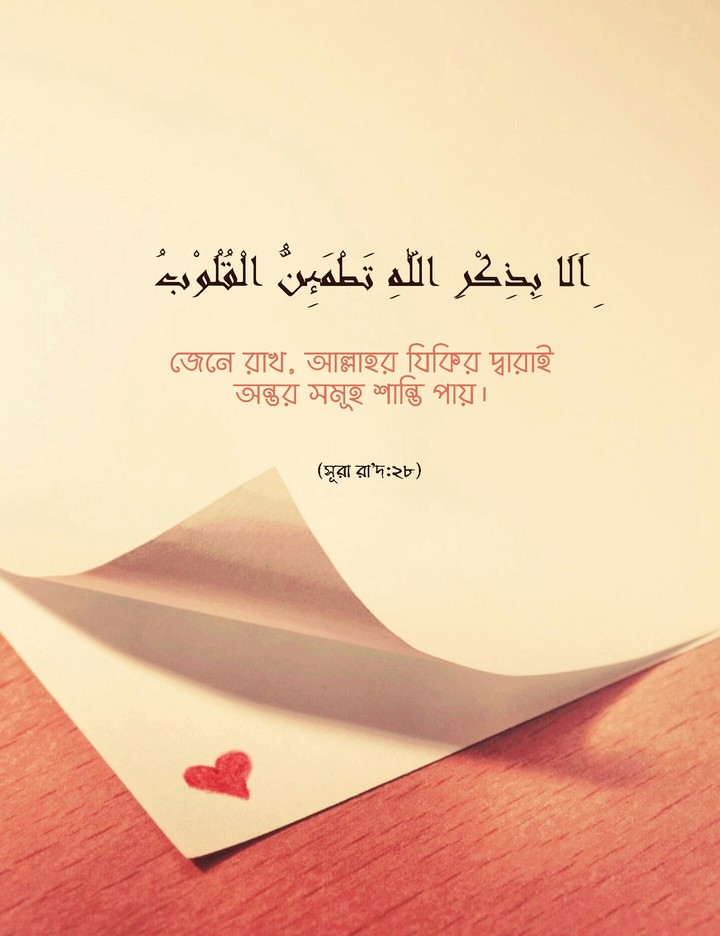 اَلَا بِذِكْرِ اللّٰهِ تَطْمَىِٕنُّ الْقُلُوْبُ
জেনে রাখ, আল্লাহর যিকির দ্বারাই
অন্তর সমূহ শান্তি পায়।
(সূরা রা'দ:২৮)